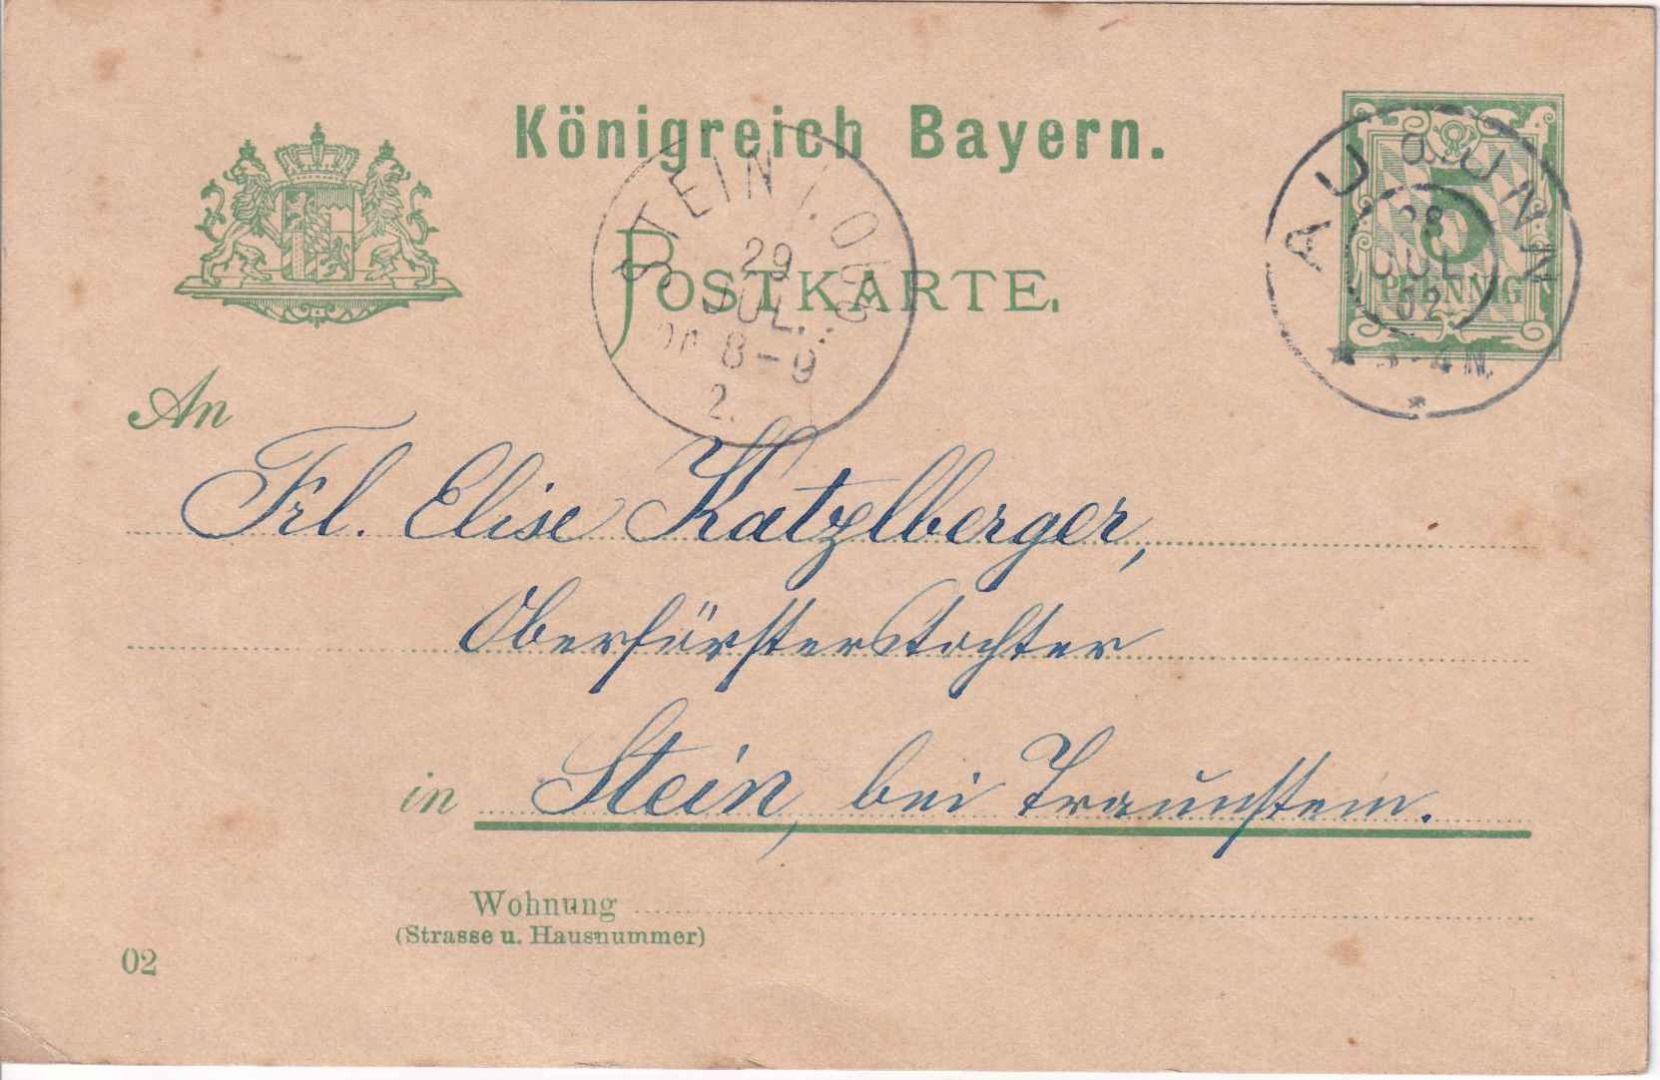 Königreich Bayern.
POSTKARTE.
STEIN I. OBB
29
JUL.
8-9
2.
AU a. UNN
28
JUL
02
3-4 N.
5
PFENNIG
An
Frl. Elise Katzlberger,
Oberförsterstochter
in Stein, bei Traunstein.
Wohnung
(Strasse u. Hausnummer)
02